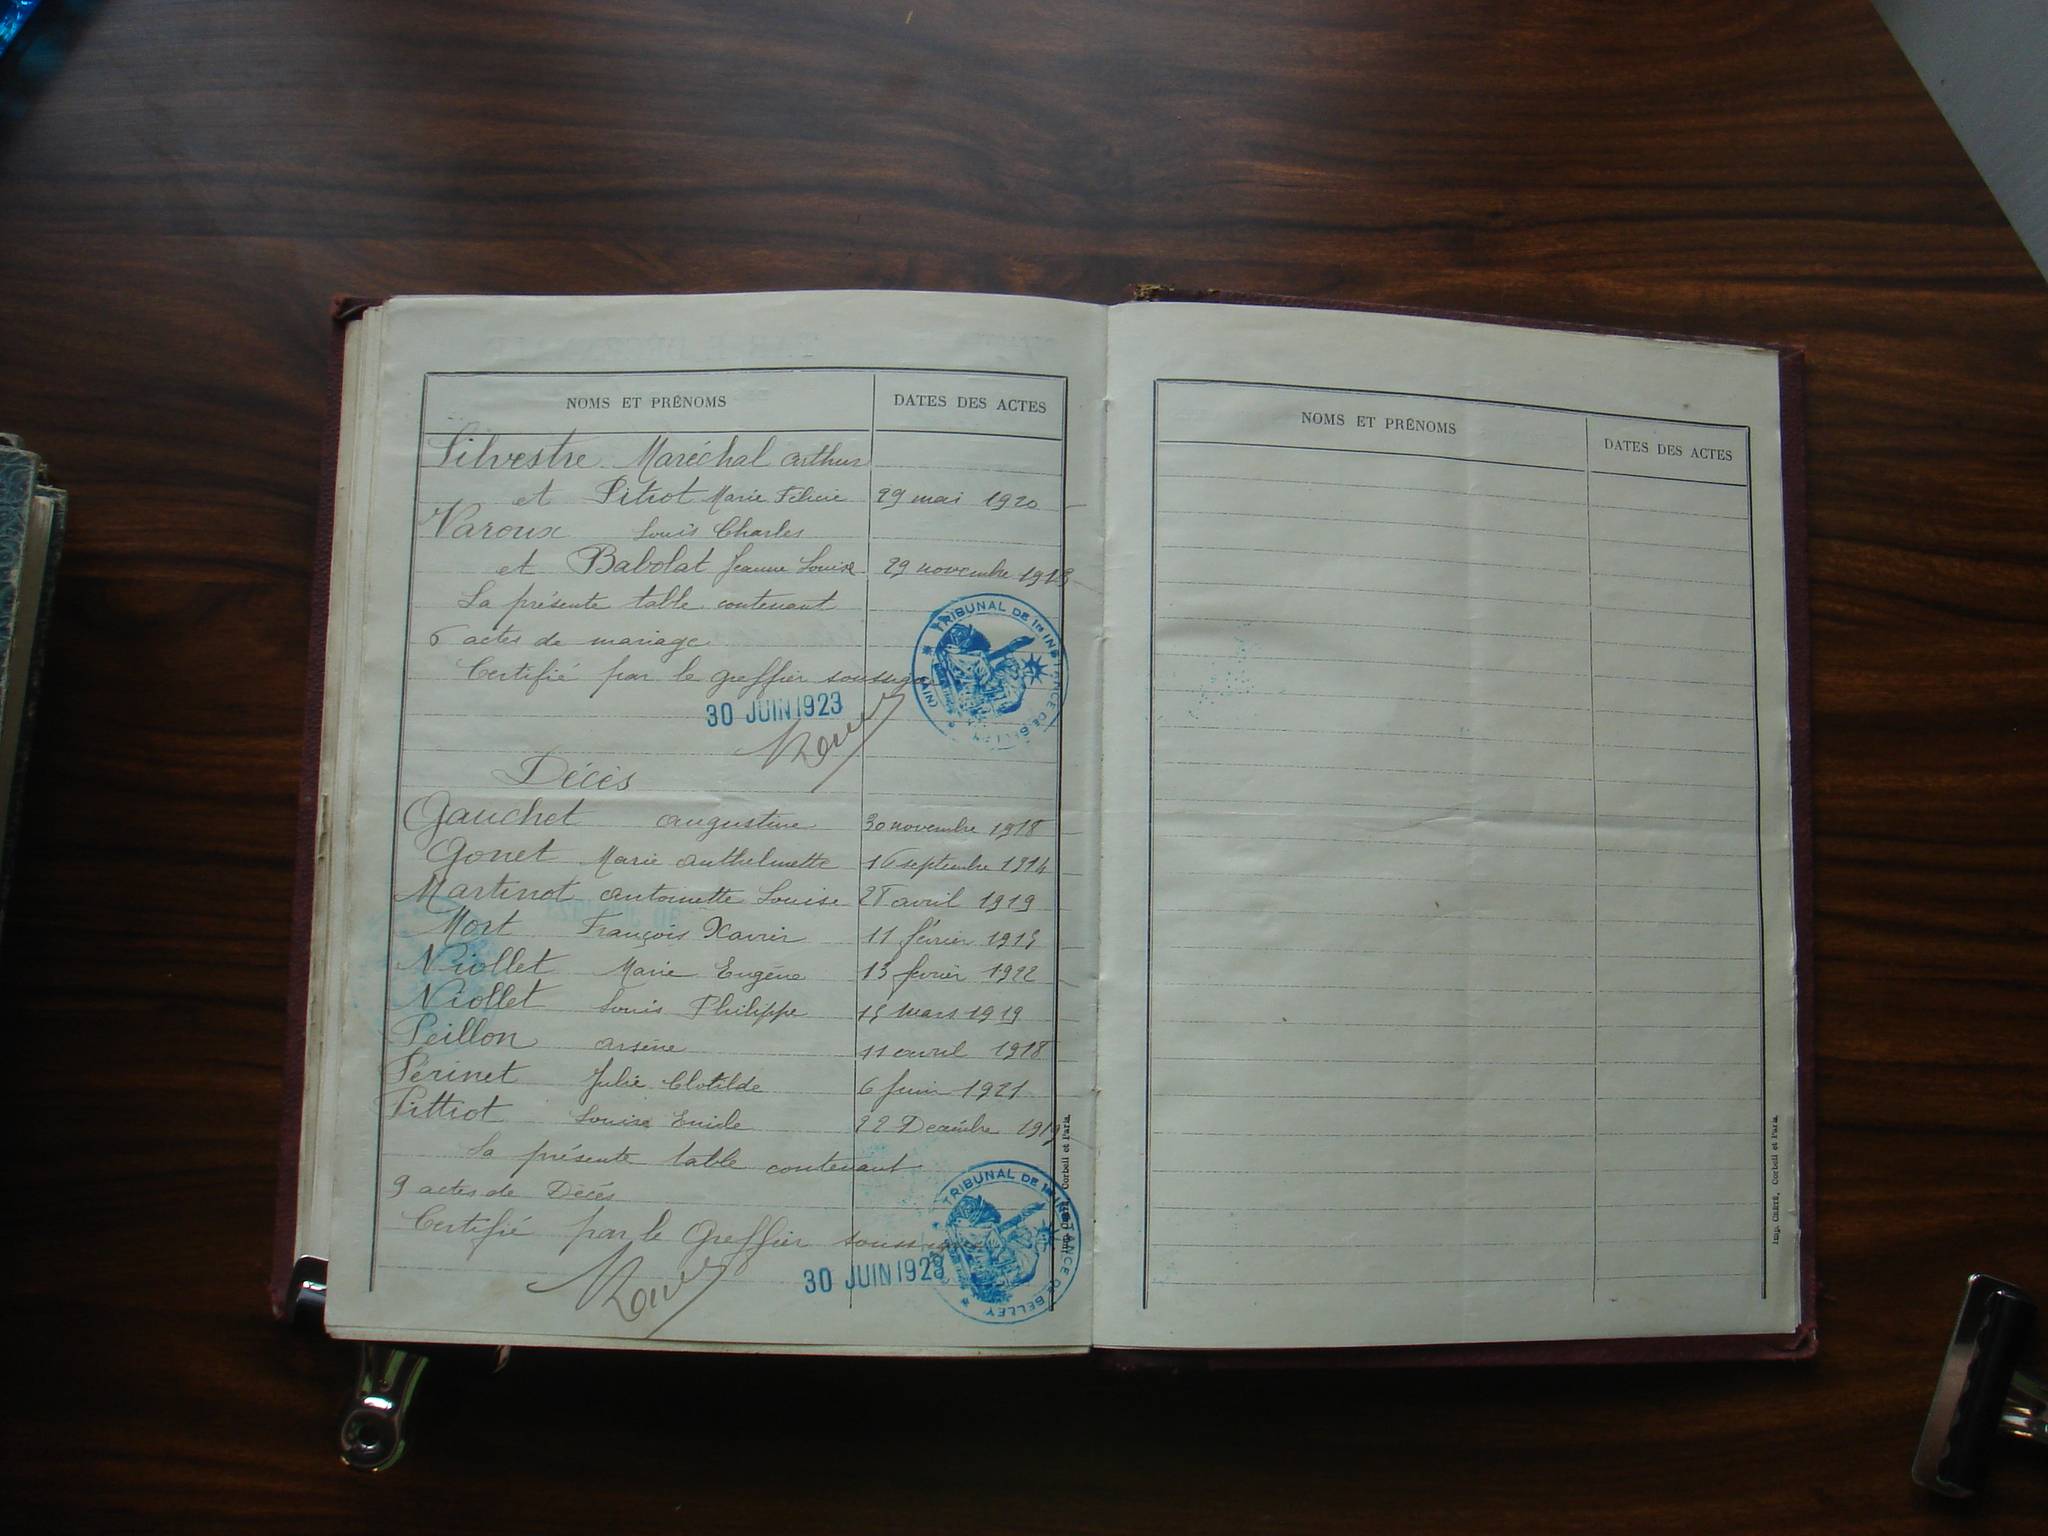 NOMS ET PRÉNOMS DATES DES ACTES
Silvestre Maréchal Arthur
et Pitrot Marie Félicie 29 mai 1920
Varoux Louis Charles
et Babolat Jeanne Louise 29 novembre 1918
La présente table contenant
6 actes de mariage
Certifié par le greffier soussigné
30 JUIN 1923
TRIBUNAL DE 1re INSTANCE DE BELLEY (AIN)
Décès
Gauchet Augustine 30 novembre 1918
Gonet Marie Anthelmette 16 septembre 1914
Martinot Antoinette Louise 28 avril 1919
Mort François Xavier 11 février 1915
Niollet Marie Eugène 13 février 1922
Niollet Louis Philippe 15 mars 1919
Peillon Arsène 11 avril 1918
Perinet Julie Clotilde 6 Juin 1921
Pittiot Louise Emile 22 Decémbre 1919
La présente table contenant
9 actes de Décés
Certifié par le Greffier soussigné
30 JUIN 1923
TRIBUNAL DE 1re INSTANCE DE BELLEY
Imp. CRÉTÉ, Corbeil et Paris.
NOMS ET PRÉNOMS DATES DES ACTES
Imp. CRÉTÉ, Corbeil et Paris.